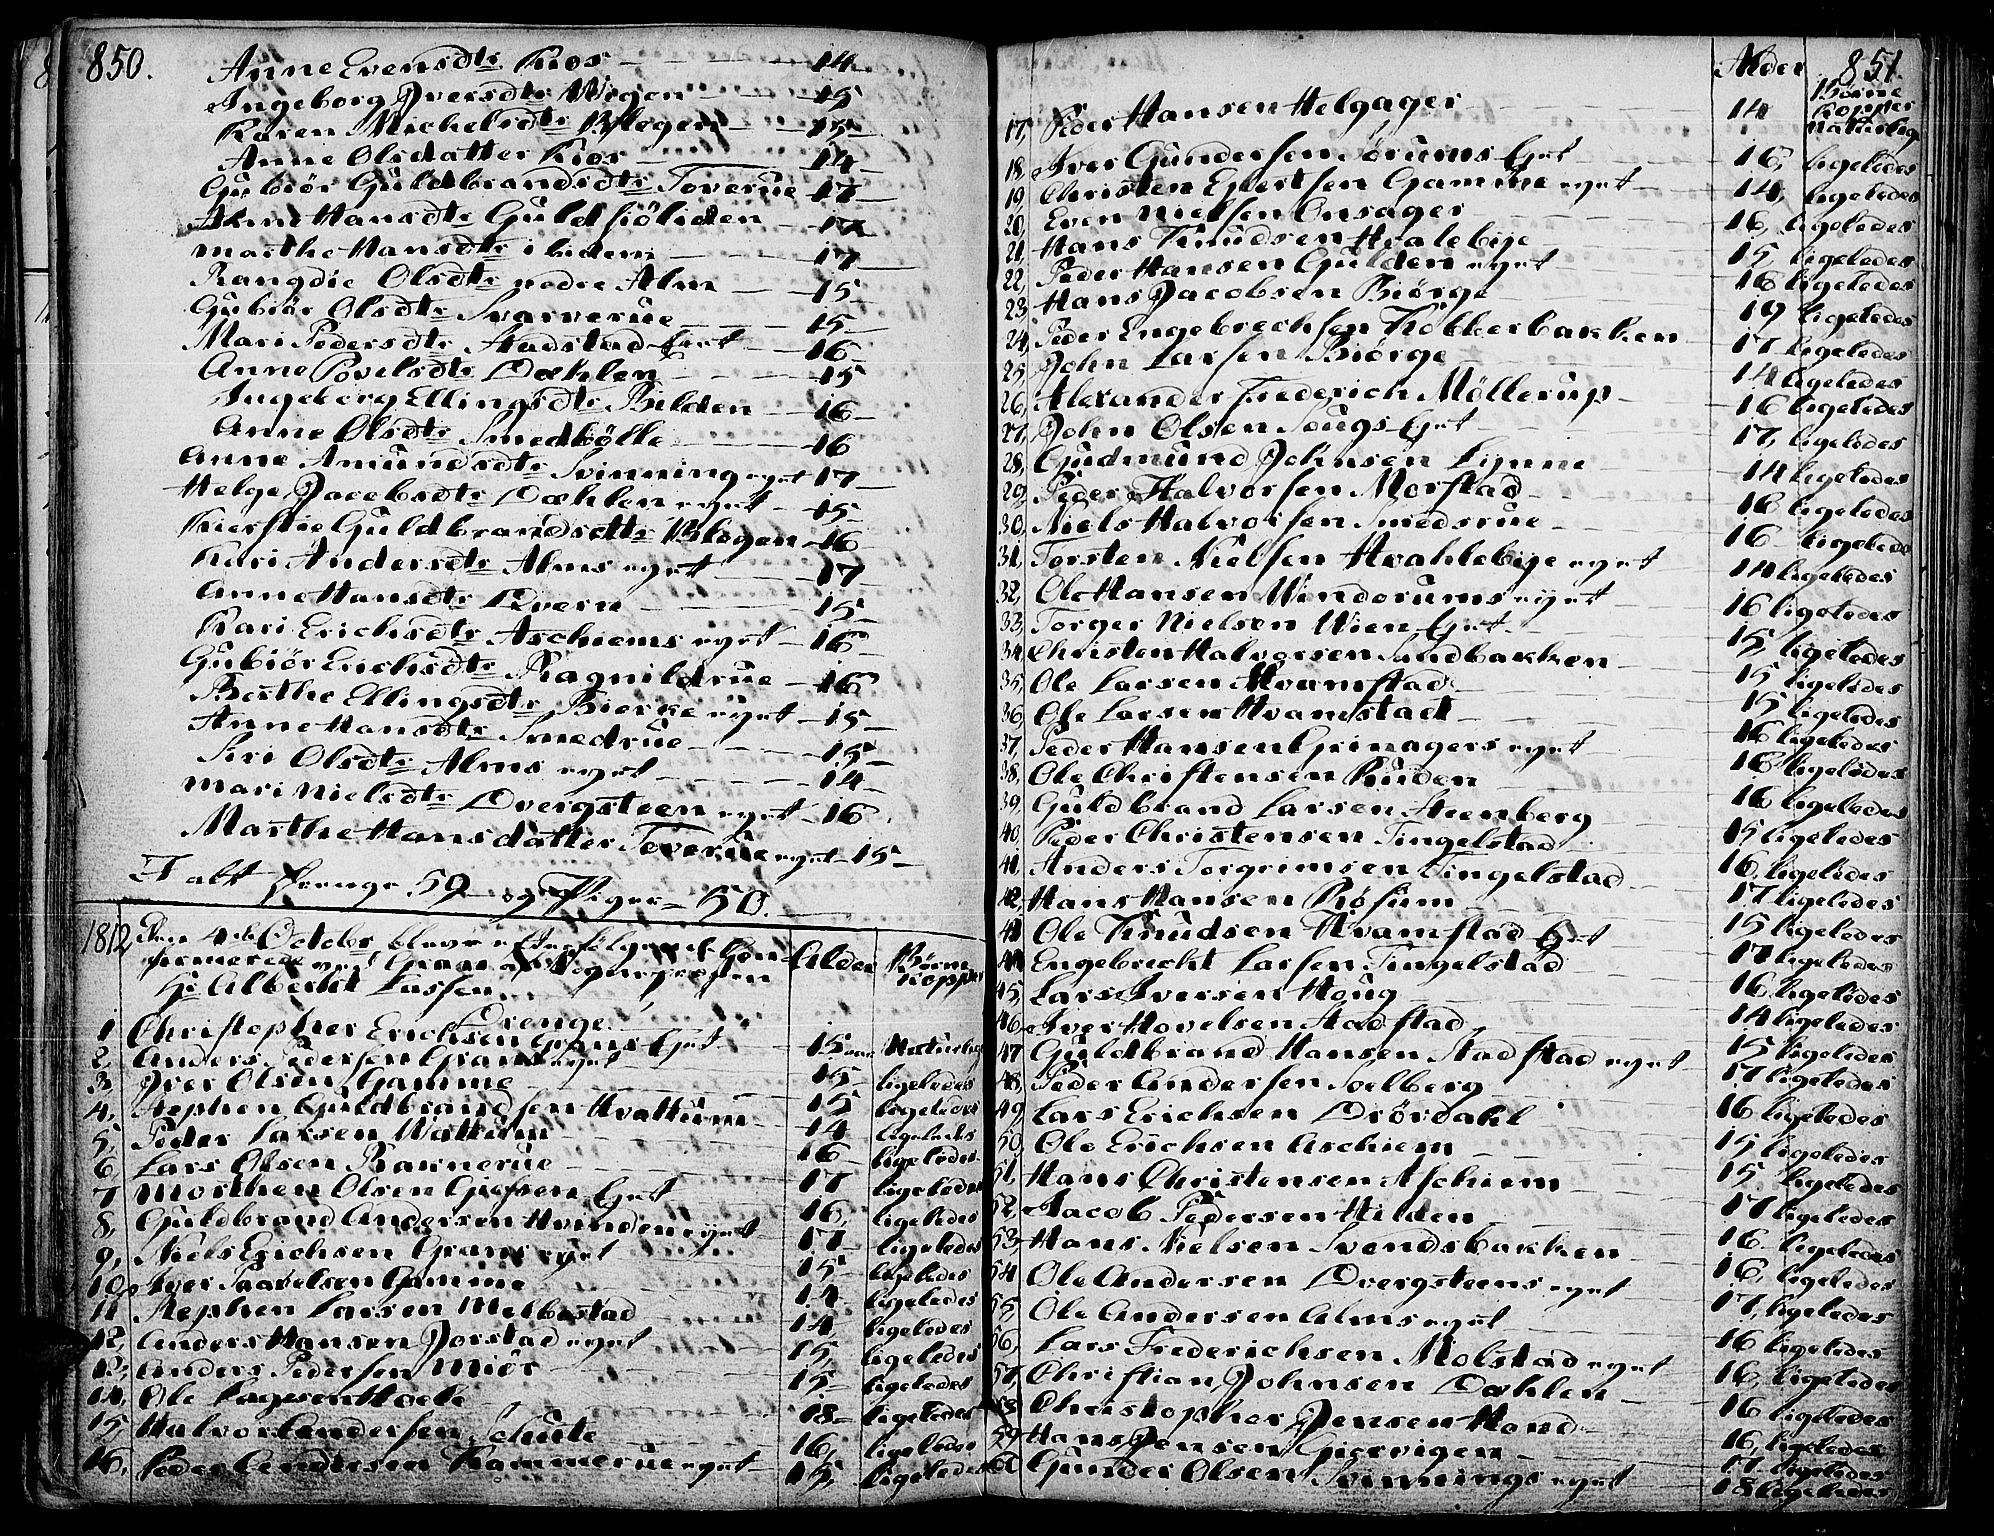 850.
Anne Evensdtr Ruos 14
Ingeborg Iversdtr Wigen 15
Karen Michelsdtr Blegen 15
Anne Olsdatter Rios 14
Gubiör Guldbrandsdtr Toverue 17
Anne Hansdtr Guldsiöliden 17
Marthe Hansdtr i Liden 17
Rangdie Olsdtr nedre Alm 15
Gubiör Olsdtr Svarverue 15
Mari Pedersdtr Stadstad Eyet 16
Anne Povelsdtr Dæhlen 15
Ingeborg Ellingsdtr Bilden 16
Anne Olsdtr Smedbölle 16
Anne Amundsdtr Svinning eyet 17
Helge Jacobsdtr Dæhlen eyet 15
Kierstie Guldbrandsdtr Blegen 16
Kari Andersdtr Alms eyet 17
Anne Hansdtr Dvern 15
Kari Erichsdtr Aschiems eyet 16
Gubiör Erichsdtr Ragnildrue 16
Berthe Ellingsdtr Bierke eyet 15
Anne Hansdtr Smedrue 15
Siri Olsdtr Alms eyet 14
Mari Nielsdtr Dvergsteen eyet 16
Marthe Hansdatter Toverue eyet 15
I alt Drenge 59 og Piger 50.
1812 Den 4de Octobr bleve efterfølgende Con- Alder Børne
firmerede ved Gran af Sognepresten Kopper
Hr Albert Lassen
Drenge
1 Christopher Erichsen Grans Eyet 15 Naturlig
2, Anders Pedersen Grans eyet 15 ligeledes
3, Iver Olsen Gamme 15 ligeledes
4, Stephen Guldbrandsen Hvattum 14 ligeledes
5, Peder Larsen Wattum 16 ligeledes
6, Lars Olsen Bannerue 17 ligeledes
7, Morthen Olsen Giefsen Eyet 16, ligeledes
8, Guldbrand Andersen Hvinden eyet 17 ligeledes
9, Niels Erichsen Grans eyet 15 ligeledes
10, Iver Paavelsen Gamme 14 ligeledes
11 Stephen Larsen Melbostad 14, ligeledes
12, Anders Hansen Jorstad eyet 15, ligeledes
13, Anders Pedersen Miör 15 ligeledes
14, Ole Hoele 18 ligeledes
15, Halvor Andersen Schute 16, ligeledes
16, Peder Andersen Kammerue eyet 15, ligeledes
Alder 851
Børne
Kopper
17, Peder Hansen Helgager 14 naturlig
18, Iver Gundersen Sörums Eyet 16, ligeledes
19, Christen Evertsen Gamme eyet 14, ligeledes
20, Even Nielsen Onsager 16, ligeledes
21, Hans Knudsen Hvalebye 15 ligeledes
22, Peder Hansen Gulden eyet 16 ligeledes
23, Hans Jacobsen Biörge 19 ligeledes
24, Peder Engebrechsen Kobberbakken 17 ligeledes
25, John Larsen Biörge 14 ligeledes
26, Alexander Frederich Möllerup 16 ligeledes
27, John Olsen Sougs Eyet 17, ligeledes
28, Gudmund Johnsen Lynne 14 ligeledes
29, Peder Halvorsen Morstad 16 ligeledes
30, Niels Halvorsen Smedsrue 16 ligeledes
31, Torsten Nielsen Hvahlebye eyet 14 ligeledes
32, Ole Hansen Windorums eyet 16 ligeledes
33, Torger Nielsen Wien Eyet 15, ligeledes
34, Christen Halvorsen Sandbakken 15 ligeledes
35, Ole Larsen Hvamstad 15 ligeledes
36, Ole Larsen Hvamstad 16 ligeledes
37, Peder Hansen Grinagers eyet 16 ligeledes
38, Ole Christensen Ruden 16 ligeledes
39, Guldbrand Larsen Steenberg 15 ligeledes
40, Peder Christensen Tingelstad 16, ligeledes
41, Anders Torgrimsen Tingelstad 17 ligeledes
42, Hans Hansen Röfum 15 ligeledes
43 Ole Knudsen Hvamstad Eyet 17 ligeledes
44 Engebrecht Larsen Tingelstad 16 ligeledes
45, Lars Iversen Houg 14 ligeledes
46, Iver Hovelsen Stadstad 15 ligeledes
47 Guldbrand Hansen Stadstad eyet 17 ligeledes
48, Peder Andersen Solberg 16 ligeledes
49 Lars Erichsen Drördahl 15 ligeledes
50, Ole Erichsen Aschiem 15 ligeledes
51, Hans Christensen Aschiem 17 ligeledes
52, Jacob Pedersen Hilden 16 ligeledes
53, Hans Nielsen Svendsbakken 16, ligeledes
54 Ole Andersen Dvergsteens eyet 17, ligeledes
55, Ole Andersen Alms eyet 16 ligeledes
56, Lars Frederichsen Molstad eyet 16, ligeledes
57 Christian Johnsen Dæhlen 16 ligeledes
58 Christopher Jensen Hond 16, ligeledes
59 Hans Jensen Giervigen 17 ligeledes
60 Gunder Olsen Svinnings eyet 18 ligeledes